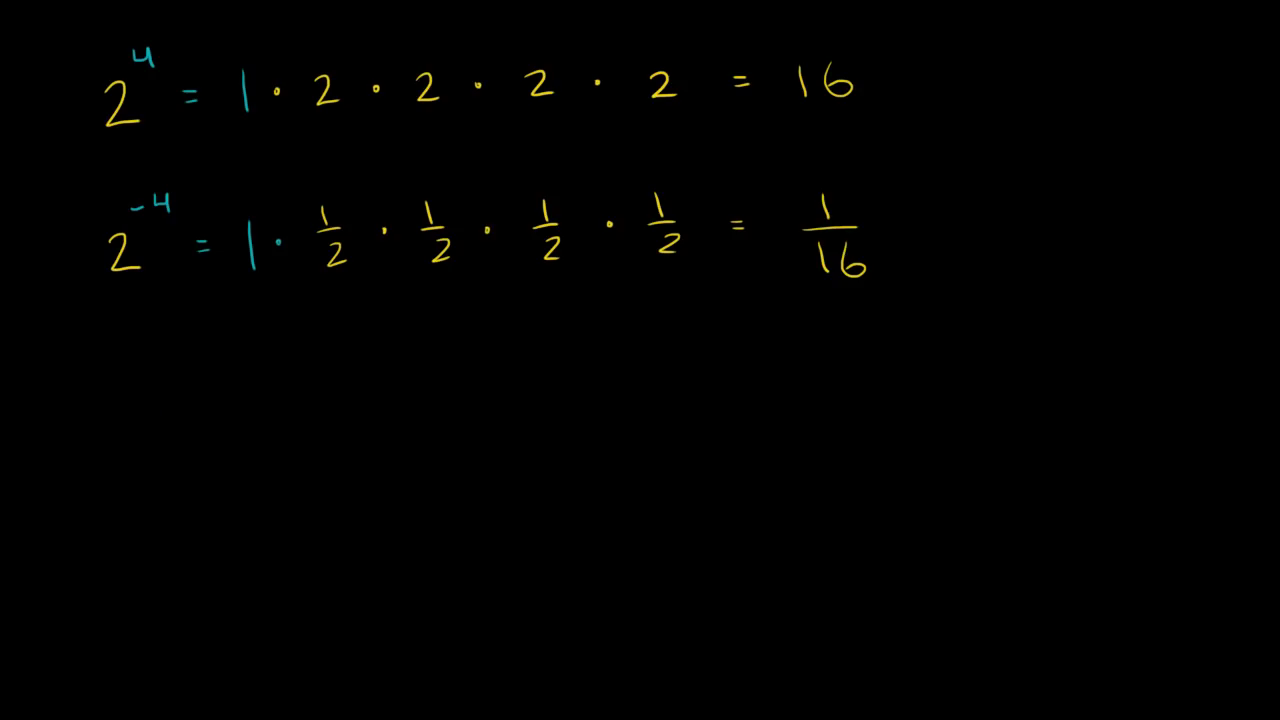 2⁴ = 1 · 2 · 2 · 2 · 2 = 16
2⁻⁴ = 1 · 1/2 · 1/2 · 1/2 · 1/2 = 1/16